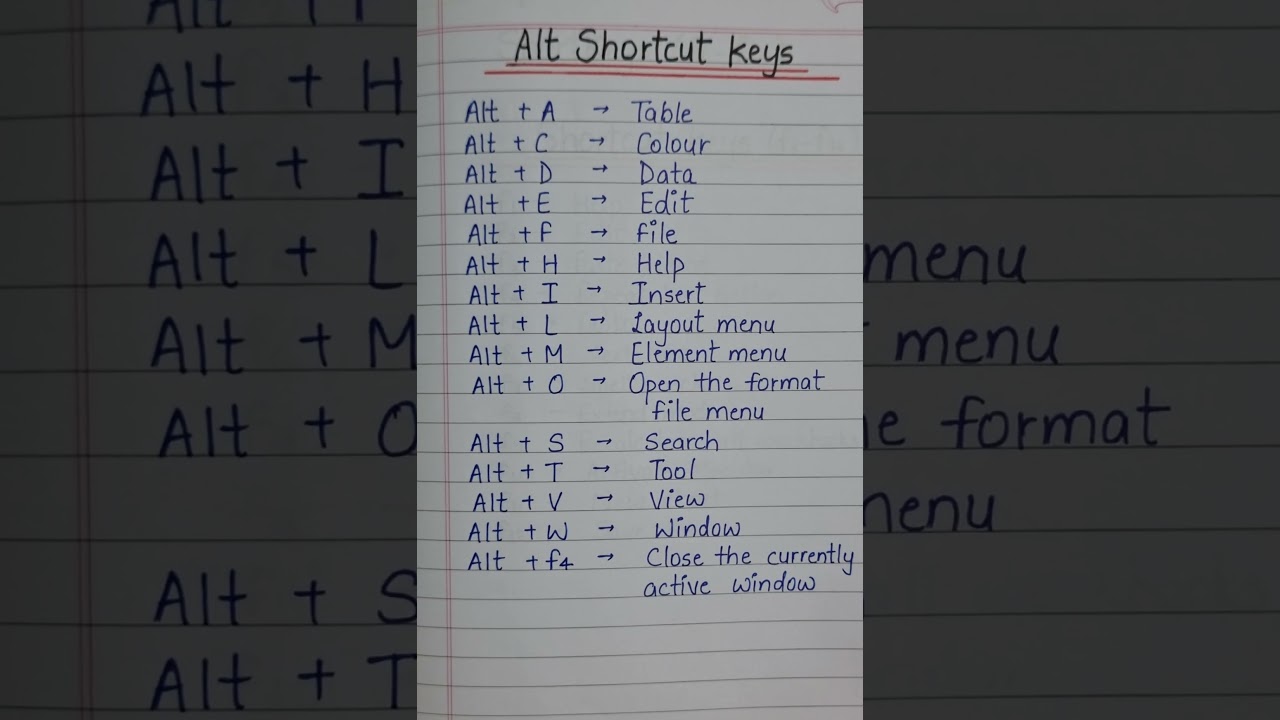 Alt Shortcut keys
Alt + A → Table
Alt + C → Colour
Alt + D → Data
Alt + E → Edit
Alt + F → file
Alt + H → Help
Alt + I → Insert
Alt + L → Layout menu
Alt + M → Element menu
Alt + O → Open the format
file menu
Alt + S → Search
Alt + T → Tool
Alt + V → View
Alt + W → Window
Alt + f4 → Close the currently
active window
Alt + H
Alt + I
Alt + L
menu
Alt + M
menu
Alt + O
format
menu
Alt + S
Alt + T